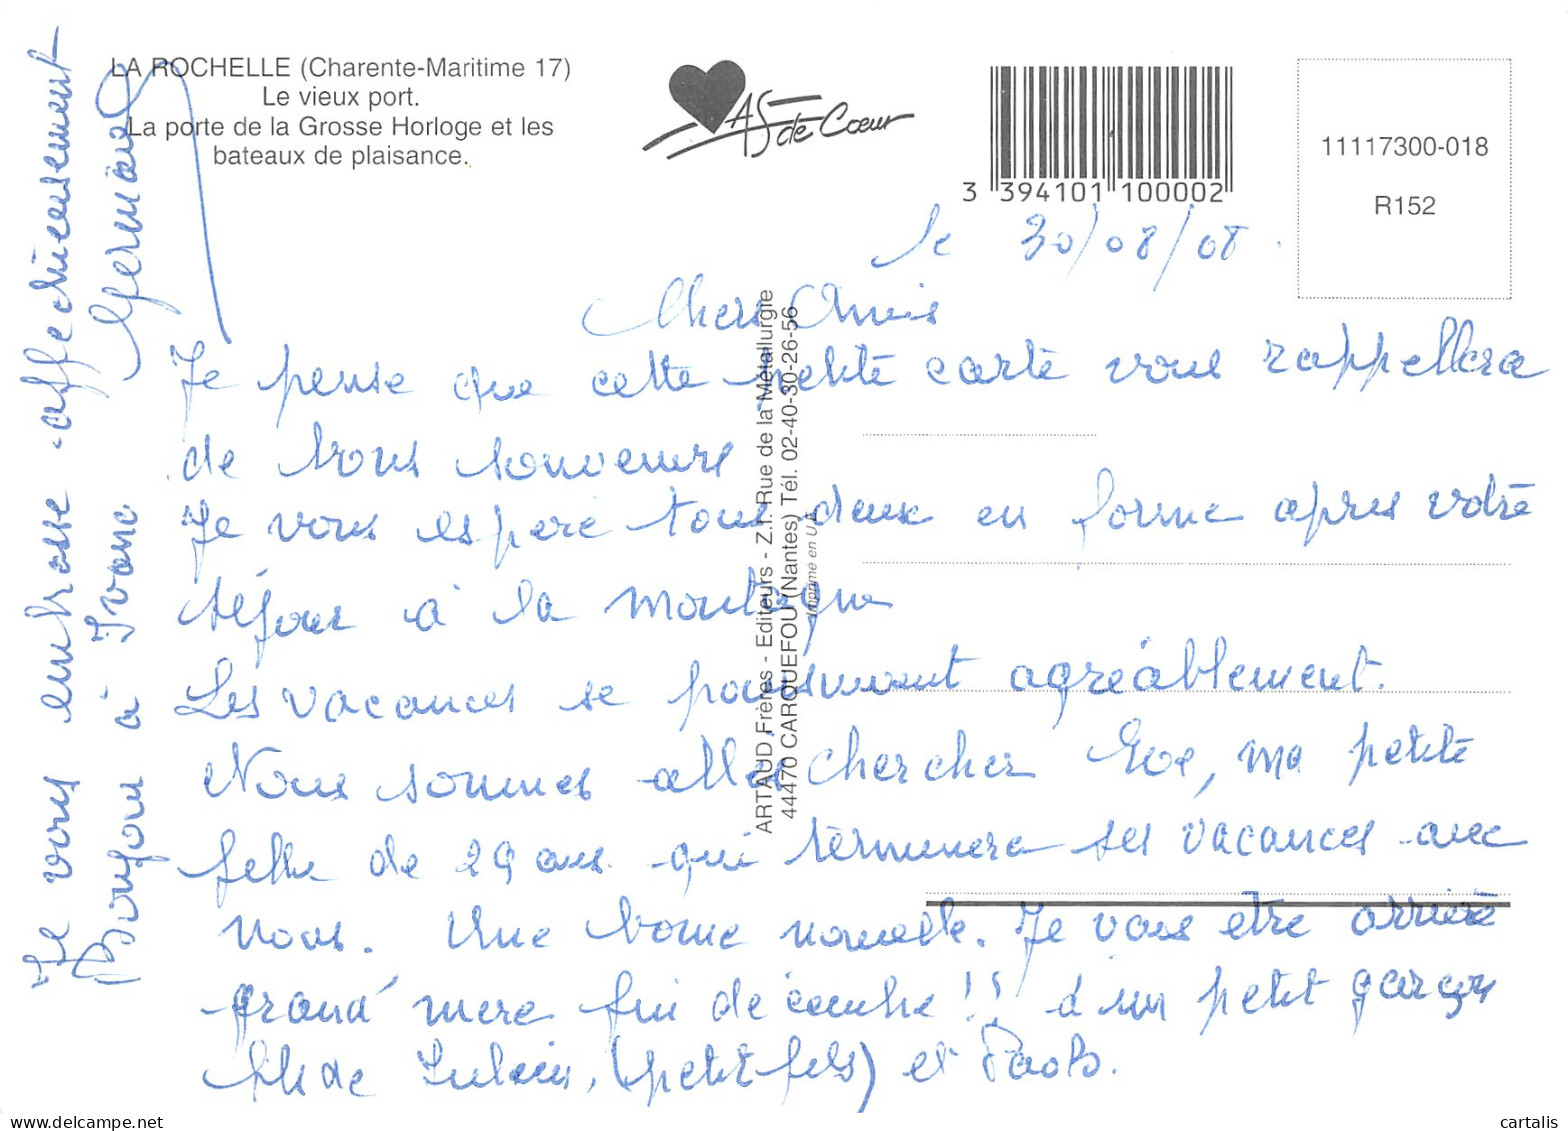 LA ROCHELLE (Charente-Maritime 17)
Le vieux port.
La porte de la Grosse Horloge et les
bateaux de plaisance.
AS de Cœur
3 394101 100002
11117300-018
R152
ARTAUD Frères - Editeurs - Z.I. Rue de la Métallurgie
44470 CARQUEFOU (Nantes) Tél. 02-40-30-26-56
Imprimé en U.E.
le 30/08/08.
Chers Amis
Je pense que cette petite carte vous rappellera
de bons souvenirs
Je vous espère tous deux en forme apres votre
séjour à la montagne
Les vacances se poursuivent agréablement.
Nous sommes allés chercher Eve, ma petite
fille de 29 ans qui terminera ses vacances avec
nous. Une bonne nouvelle. Je vais etre arrière
grand'mere fin décembre !! d'un petit garçon
fils de Julien, (petit fils) et Paola.
Je vous embrasse affectueusement
Bonjour à Ivone Germaine
cartalis